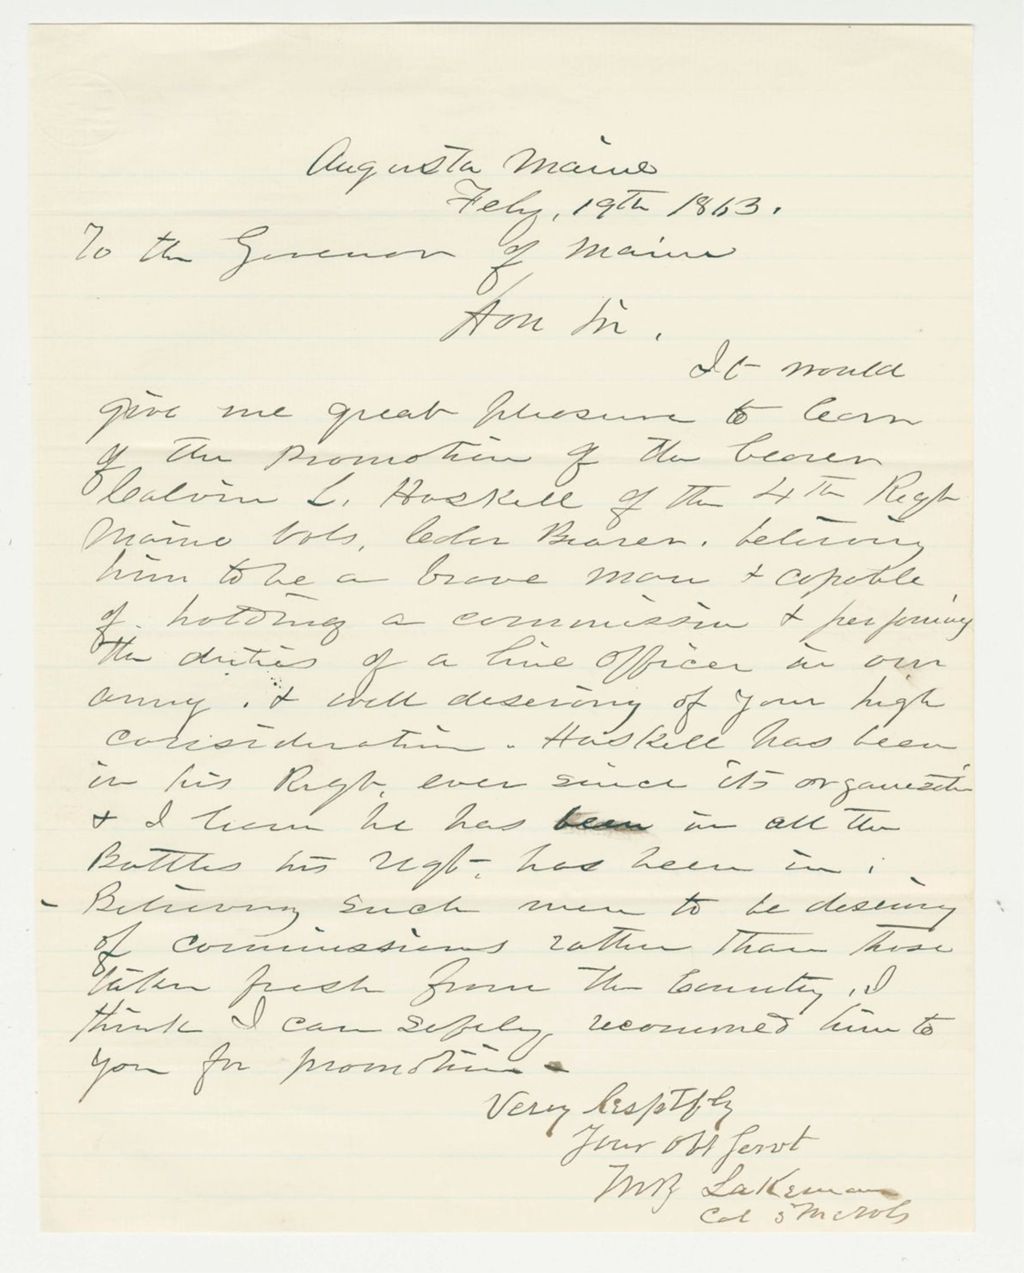 Augusta Maine
Feby, 19th 1863.
To the Govenor of Maine
Hon Sir,
It would
give me great pleasure to learn
of the promotion of the bearer
Calvin L. Haskell of the 4th Regt
Maine Vols, Color Bearer. believing
him to be a brave man & capable
of holding a commission & performing
the duties of a line officer in our
army. & well deserving of your high
consideration. Haskell has been
in his Regt, ever since its organization
& I learn he has been in all the
Battles his Regt, has been in.
Believing such men to be deserving
of commissions rather than those
taken fresh from the Country, I
think I can safely recommed him to
you for promotion
Very Respetfly
Your Obt Servt
M B Lakeman
Col 3 Me Vols